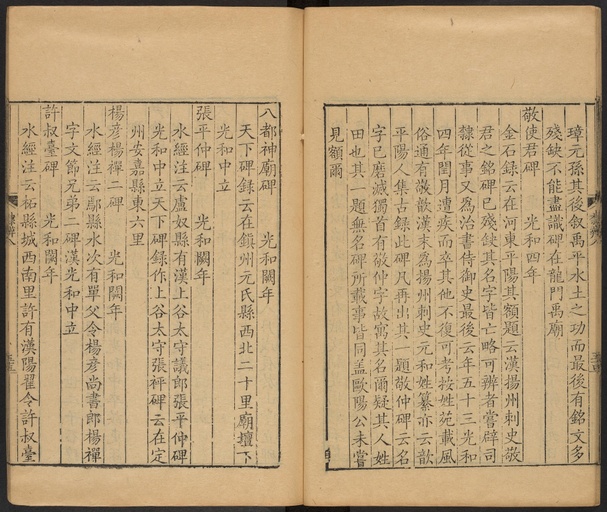 璋元孫其後敘禹平水土之功而最後有銘文多
殘缺不能盡識碑在龍門禹廟
敬使君碑 光和四年
金石録云在河東平陽其額題云漢揚州刺史敬
君之銘碑已殘缺其名字皆亡略可辨者嘗辟司
隸從事又為治書侍御史最後云年五十三光和
四年閏月遭疾而卒其他不復可考按姓苑載風
俗通有敬歆漢末為揚州刺史元和姓纂亦云歆
平陽人集古録此碑凡再出其一題敬仲碑云名
字已磨滅獨首有敬仲字故寓其名爾疑其人姓
田也其一題無名碑所載事皆同盖歐陽公未嘗
見額爾
八都神廟碑 光和闕年
天下碑録云在鎮州元氏縣西北二十里廟壇下
光和中立
張平仲碑 光和闕年
水經注云盧奴縣有漢上谷太守議郎張平仲碑
光和中立天下碑録作上谷太守張秤碑云在定
州安嘉縣東六里
楊彦楊禪二碑 光和闕年
水經注云鄢縣水次有單父令楊彦尚書郎楊禪
字文節兄弟二碑漢光和中立
許叔臺碑 光和闕年
水經注云柘縣城西南里許有漢陽翟令許叔臺